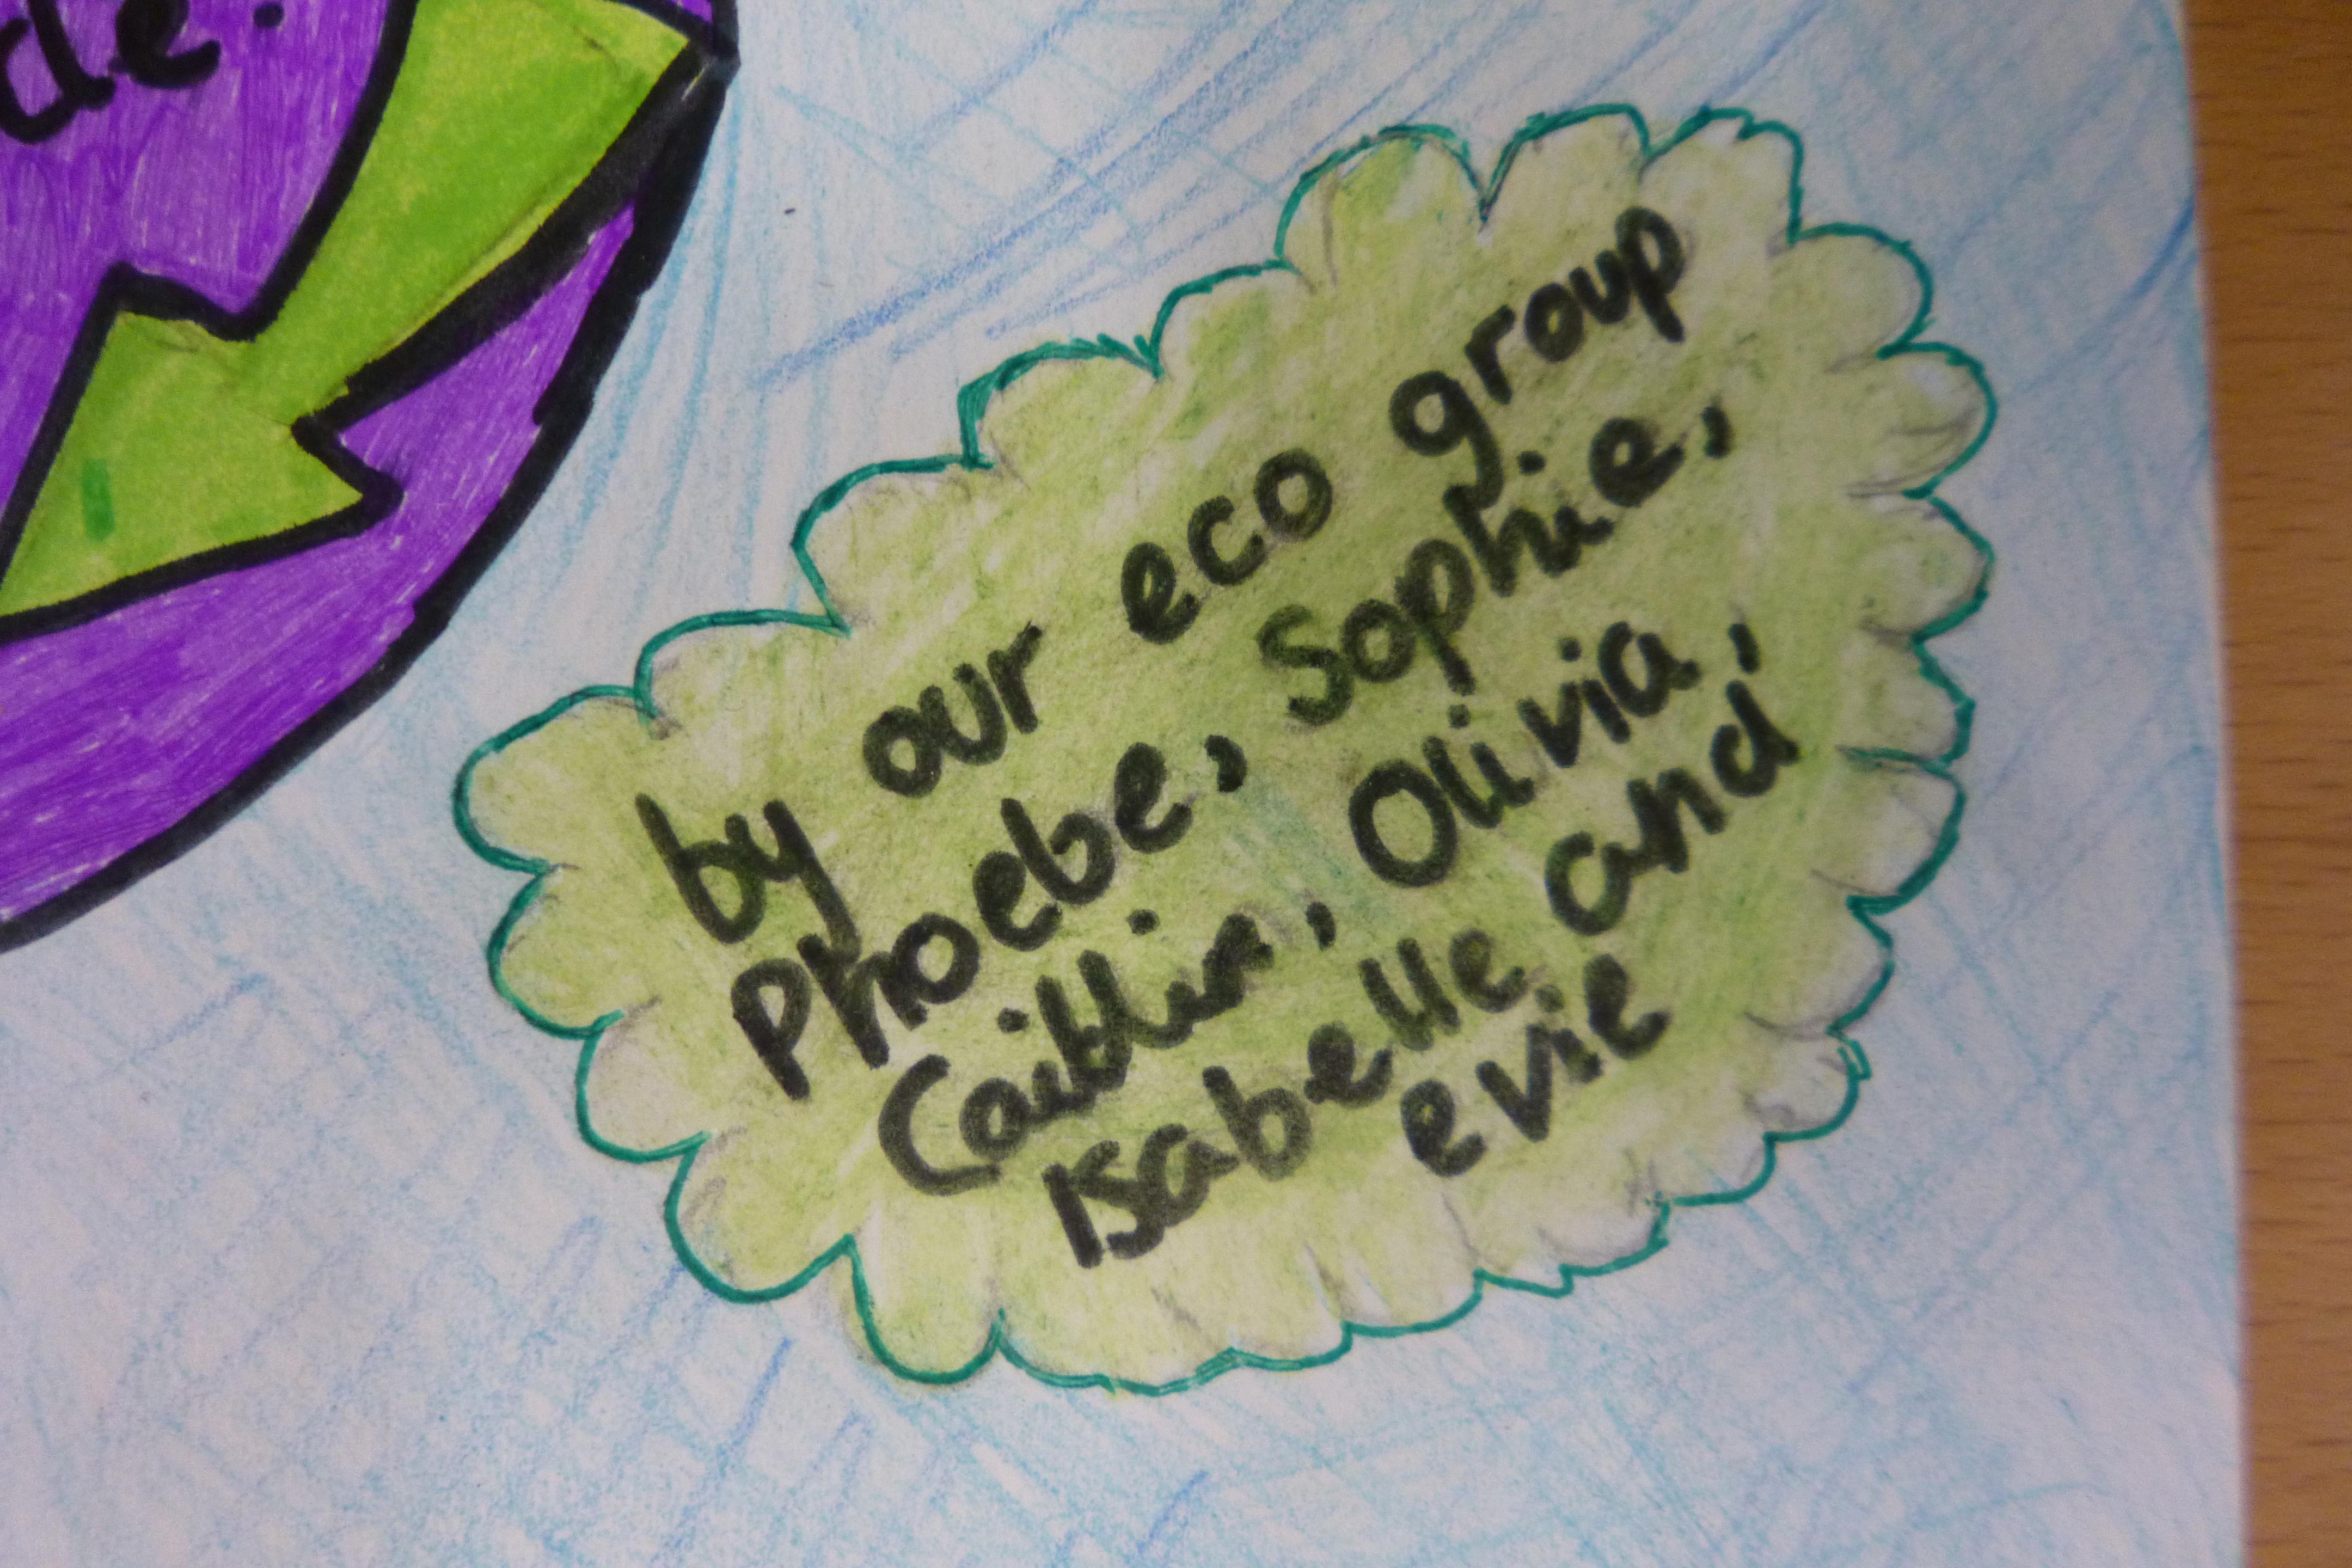 de.
by our eco group
Phoebe, Sophie,
Caitlin, Olivia,
Isabelle and
evie